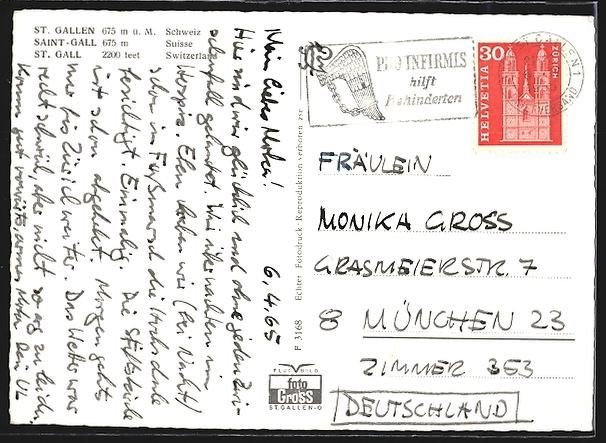 ST. GALLEN 675 m ü. M. Schweiz
SAINT-GALL 675 m Suisse
ST. GALL 2200 feet Switzerland
6.4.65
Mein liebes Mohrl!
Hier sind wir glücklich und ohne jeden Zwi-
schenfall gelandet. Wir übernachten im
Hospiz. Eben haben wir (bei Nacht)
schon im Fußmarsch die Hochschule
besichtigt. Einmalig. Die Stiftskirche
ist schon abgehakt. Morgen geht's
nur bis Zürich weiter. Das Wetter war
recht schwül, aber nicht so arg zu leiden.
Kamen gut vorwärts. Dein
P 3168 Echter Fotodruck Reproduktion verboten
PRO INFIRMIS
hilft
Behinderten
ST. GALLEN 1
30
HELVETIA
ZÜRICH
FRÄULEIN
MONIKA GROSS
GRASMEIERSTR. 7
8 MÜNCHEN 23
ZIMMER 353
DEUTSCHLAND
FLUGBILD
foto
GROSS
ST. GALLEN-O